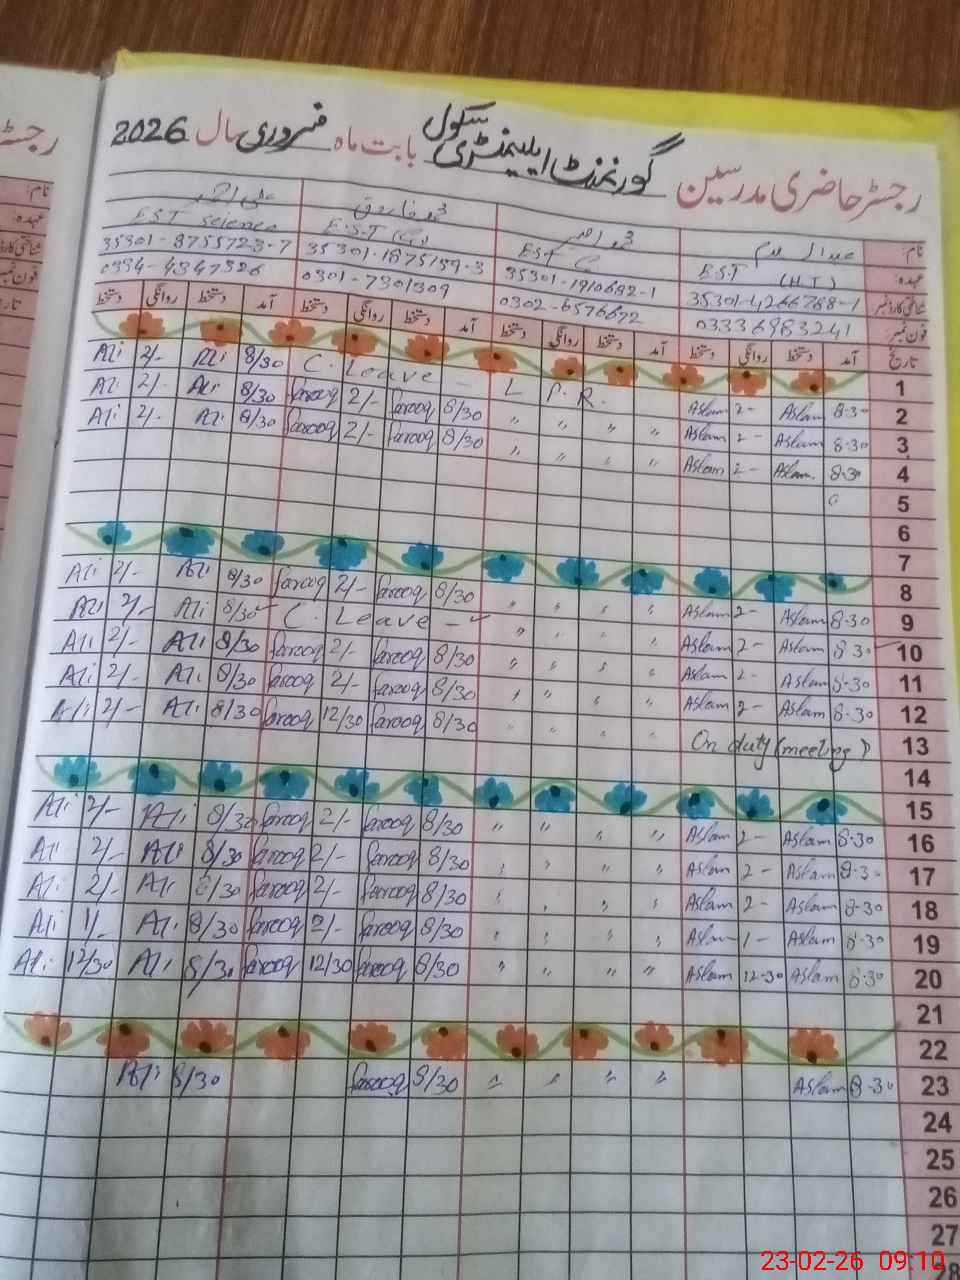 رجسٹر حاضری مدرسین گورنمنٹ ایلیمنٹری سکول بابت ماہ فروری سال 2026
نام: عبدالسلام محمد فاروق
عہدہ: E.S.T (H.T) EST E.S.T EST science
شناختی کارڈ نمبر 35301-4266788-1 35301-1910682-1 35301-1875159-3 35301-8755723-7
فون نمبر: 03336983241 0302-6576672 0301-7301309 0334-4347326
تاریخ آمد دستخط روانگی دستخط آمد دستخط روانگی دستخط آمد دستخط روانگی دستخط آمد دستخط روانگی دستخط
1
Ali 2/- Ali 8/30 C. Leave - L P. R. Aslam 2- Aslam 8-30 2
Ali 2/- Ali 8/30 farooq 2/- farooq 8/30 " " " " Aslam 2- Aslam 8-30 3
Ali 2/- Ali 8/30 farooq 2/- farooq 8/30 " " " " Aslam 2- Aslam 8-30 4
5
6
7
8
Ali 2/- Ali 8/30 farooq 2/- farooq 8/30 " " " " Aslam 2- Aslam 8-30 9
Ali 2/- Ali 8/30 C. Leave - " " " " Aslam 2- Aslam 8-30 10
Ali 2/- Ali 8/30 farooq 2/- farooq 8/30 " " " " Aslam 2- Aslam 8-30 11
Ali 2/- Ali 8/30 farooq 2/- farooq 8/30 " " " " Aslam 2- Aslam 8-30 12
Ali 2/- Ali 8/30 farooq 12/30 farooq 8/30 " " " " On duty (meeting) 13
14
15
Ali 2/- Ali 8/30 farooq 2/- farooq 8/30 " " " " Aslam 2- Aslam 8-30 16
Ali 2/- Ali 8/30 farooq 2/- farooq 8/30 " " " " Aslam 2- Aslam 8-30 17
Ali 2/- Ali 8/30 farooq 2/- farooq 8/30 " " " " Aslam 2- Aslam 8-30 18
Ali 1/- Ali 8/30 farooq 2/- farooq 8/30 " " " " Aslam 1- Aslam 8-30 19
Ali 12/30 Ali 8/30 farooq 12/30 farooq 8/30 " " " " Aslam 12-30 Aslam 8-30 20
21
22
Ali 8/30 farooq 8/30 " " " " Aslam 8-30 23
24
25
26
27
28
23-02-26 09:10